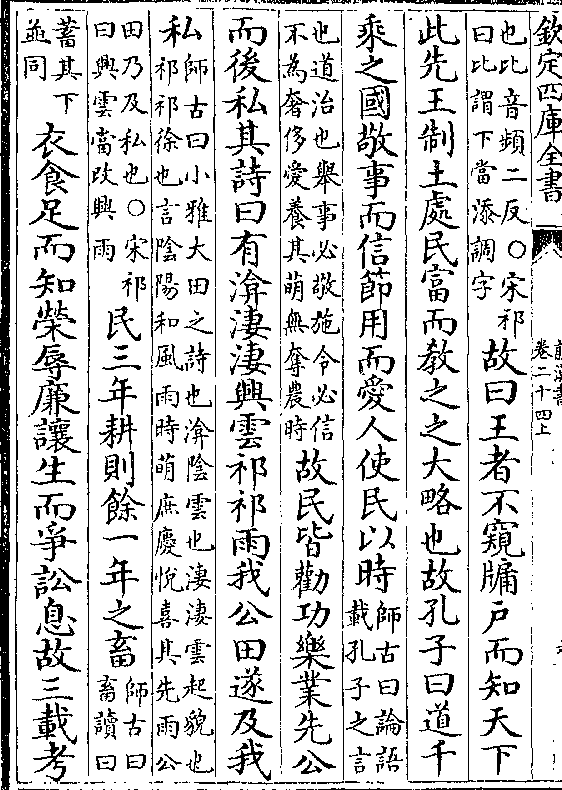 欽定四庫全書
卷二十四上
也比音頻二反〇宋祁
曰比謂下當添調字
故曰王者不窺牖戶而知天下
此先王制土處民富而敎之之大略也故孔子曰道千
乘之國敬事而信節用而愛人使民以時
師古曰論語
載孔子之言
也道治也舉事必敬施令必信
不為奢侈愛養其萌無奪農時
故民皆勸功樂業先公
而後私其詩曰有渰淒淒興雲祁祁雨我公田遂及我
私
師古曰小雅大田之詩也渰陰雲也淒淒雲起貌也
祁祁徐也言陰陽和風雨時萌庶慶悅喜其先雨公
田乃及私也〇宋祁
曰興雲當改興雨
民三年耕則餘一年之畜
師古曰
畜讀曰
蓄其下
並同
衣食足而知榮辱廉讓生而爭訟息故三載考